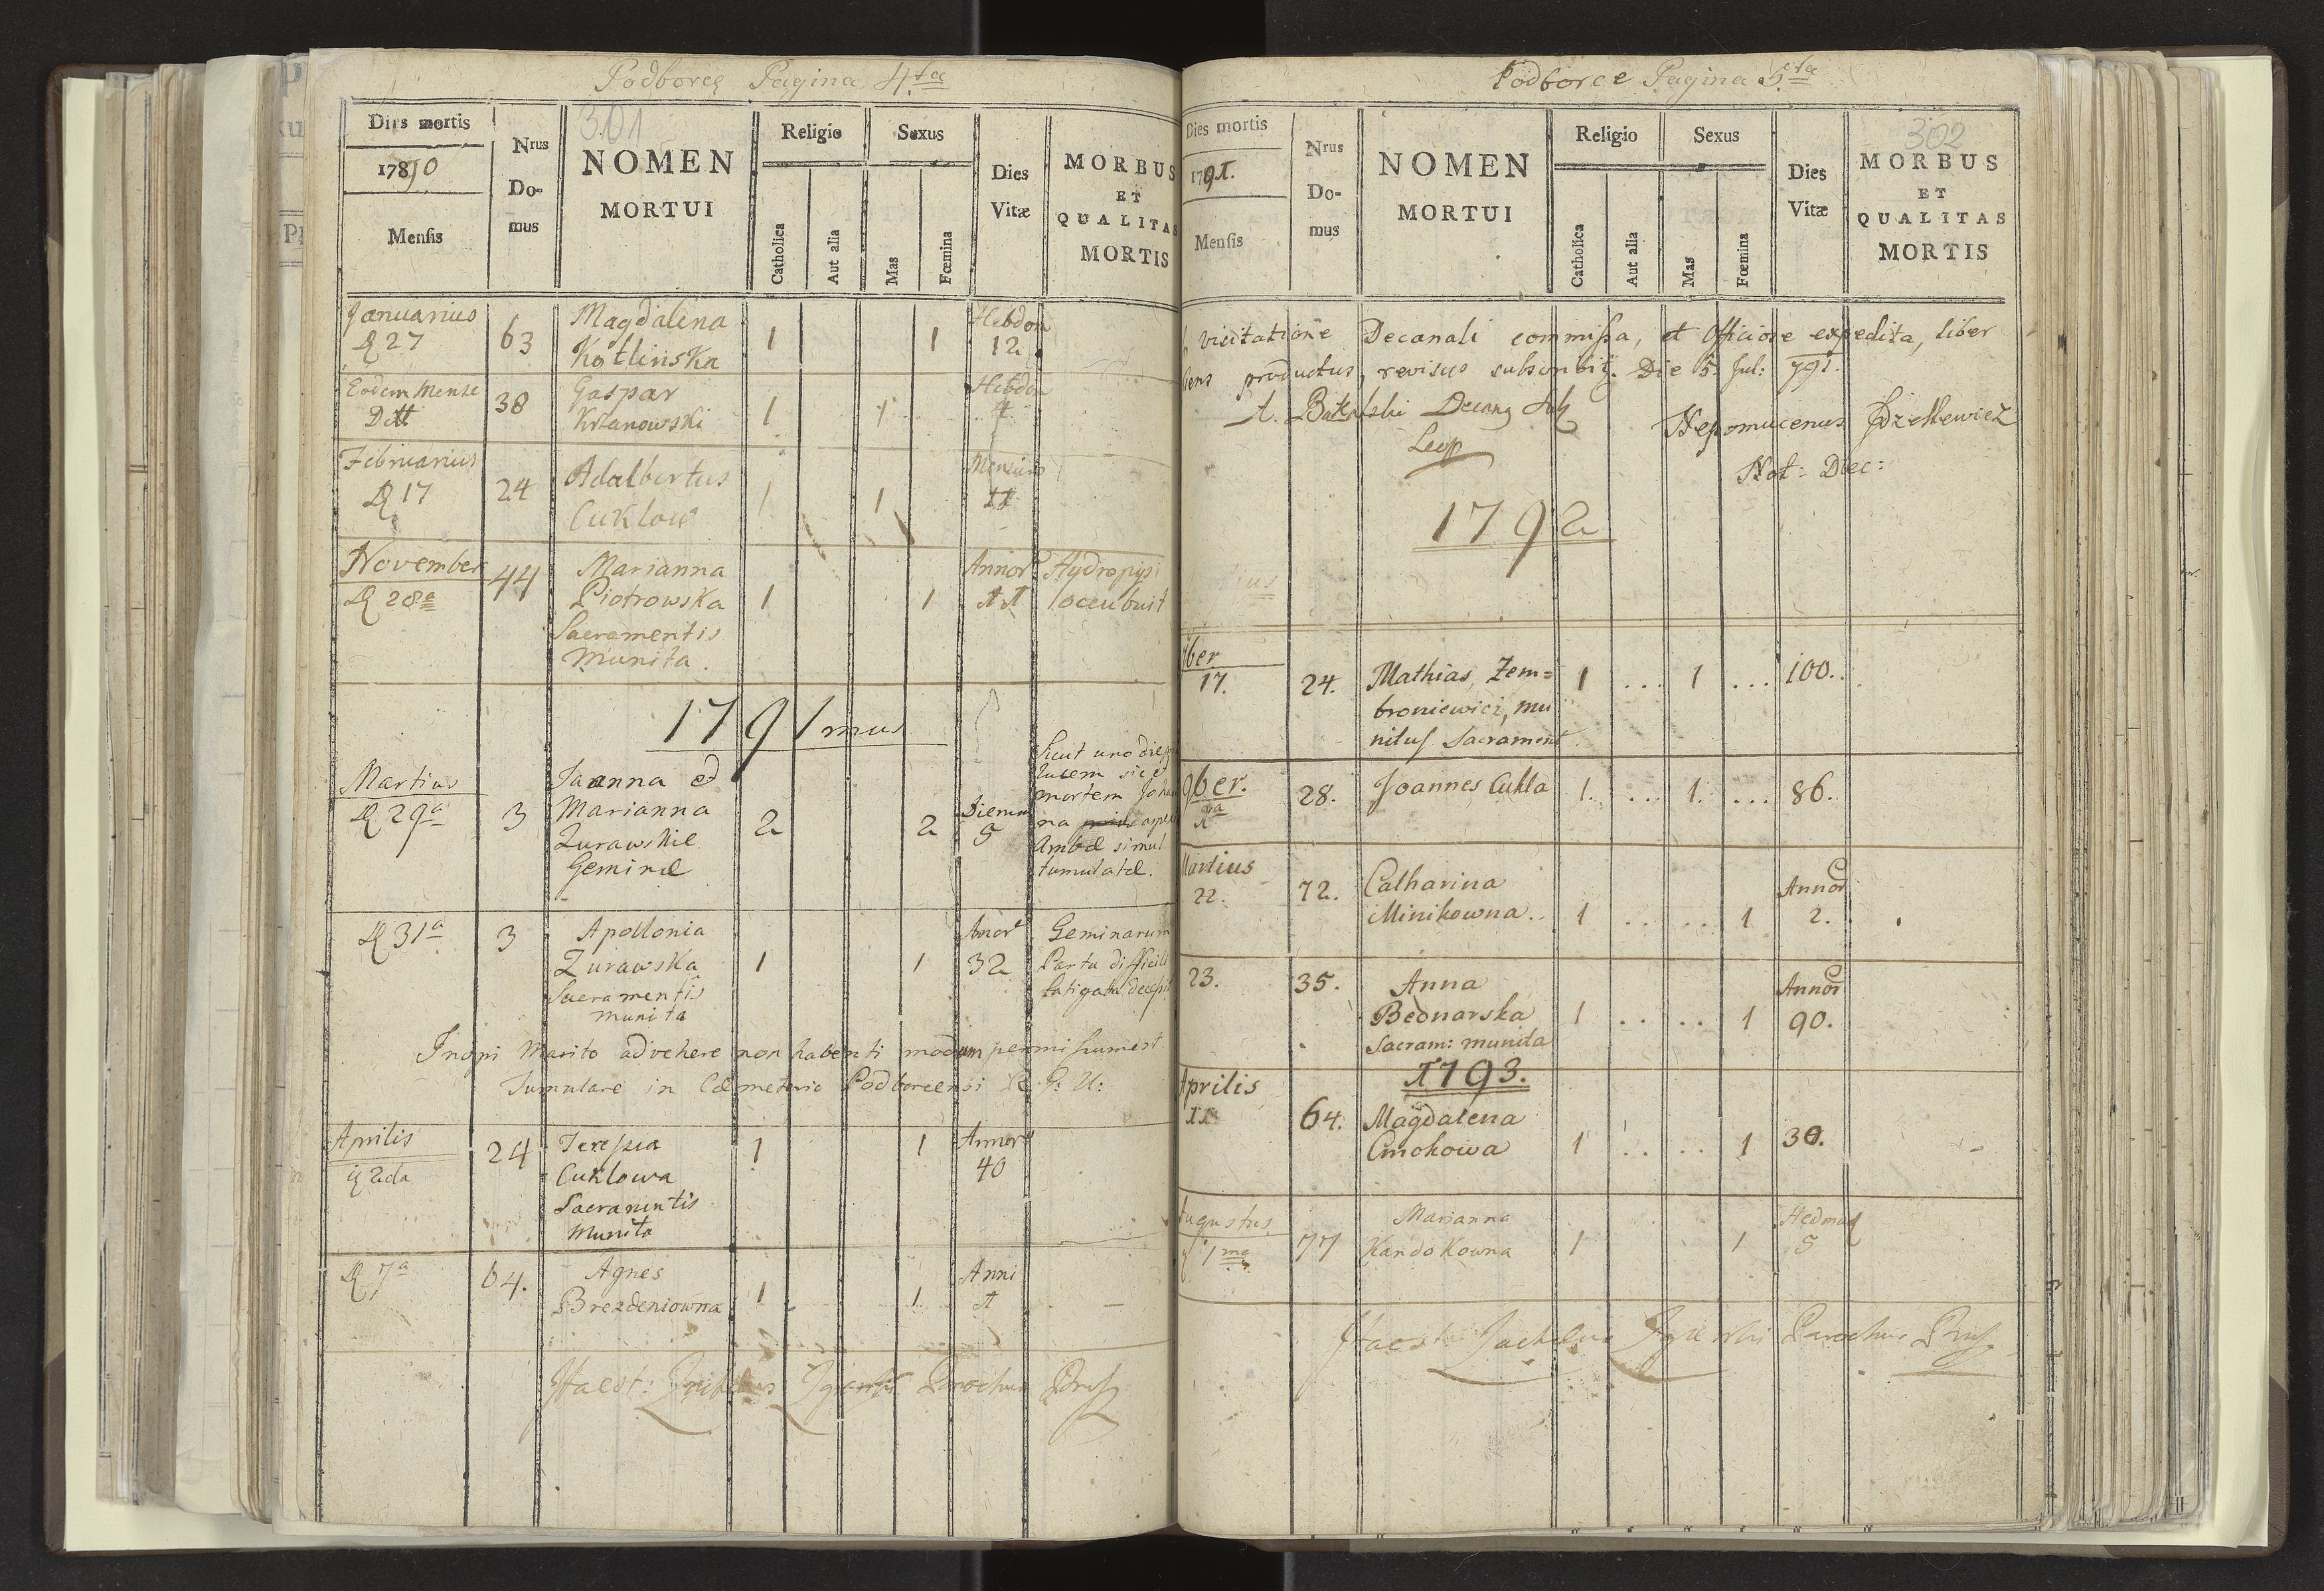 Podborce Pagina 4ta
301
Dies mortis
1790
Mensis
Nrus Domus
NOMEN MORTUI
Religio
Catholica
Aut alia
Sexus
Mas
Fœmina
Dies Vitæ
MORBUS ET QUALITAS MORTIS
Januarius 63 Magdalena 1 1 Hebdom
27 Kotlinska 12
Eodem Mense 38 Gaspar 1 1 Hebdom
Krzanowski
Februarius 24 Adalbertus 1 1
17 Cuklow 11
November 44 Marianna Annor Hydropysi
28a Piotrowska 1 1 occubuit
Sacramentis
munita.
1791mus
Martius Joanna et
29a 3 Marianna 2 2 Dierum 5
Zurawskie
Geminæ
Sunt uno die
lucem sic et
mortem Johan
na
Ambæ simul
tumulatæ.
31a 3 Apollonia Annor Geminarum
Zurawska 1 1 32 Partu difficili
Sacramentis fatigata
munita
Inopi Marito advehere non habenti modum permissum est
Tumulare in Cæmeterio Podborcensi R. G. U:
Aprilis 24 Teressia 1 1 Annor
2da Cuklowa 40
Sacramentis
Munita
7a 64. Agnes 1 1 Anni
Brezdeniowna 1
Ita est: Parochus
Podborce Pagina 5ta
302
Dies mortis
1791.
Mensis
Nrus Domus
NOMEN MORTUI
Religio
Catholica
Aut alia
Sexus
Mas
Fœmina
Dies Vitæ
MORBUS ET QUALITAS MORTIS
visitatione Decanali commissa, et Officiose expedita, liber
productus, revisus subscribit. Die 5. Jul: 791.
Decang
Leop
Nepomucenus
Not: Dec:
1792
ber
17. 24. Mathias, Zem=
broniewicz, mu
nitus Sacrament 1 ... 1 ... 100.
9ber. 28. Joannes Cukla 1. ... 1. ... 86.
Martius 72. Catharina Annor
22. Minikowna.. 1 .. .. 1 2.
23. 35. Anna Annor
Bednarska 1 .. .. 1 90.
Sacram: munita
1793.
Aprilis 64. Magdalena
Cmokowa 1 .. .. 1 30.
Augustus Marianna
1ma 77 Kandokowna 1 1 5
Ita est Parochus